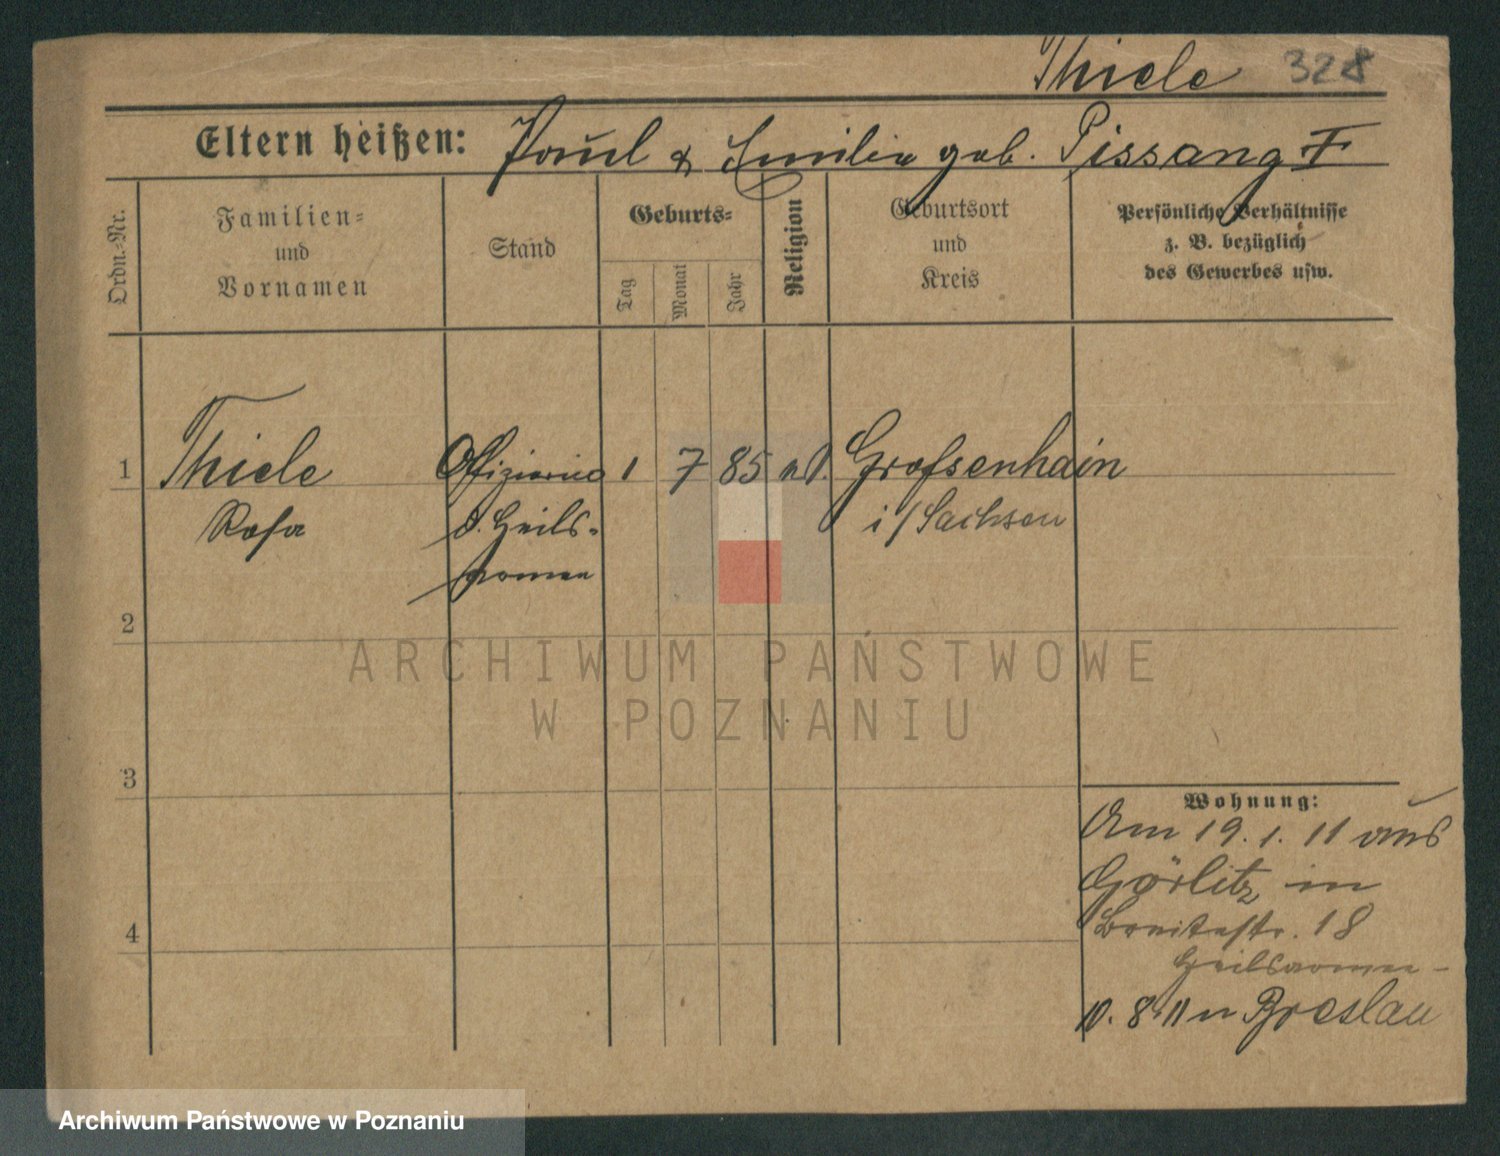 Thiele 328
Eltern heißen: Paul & Emilie geb. Pissang
Ordn.-Nr.
Familien-
und
Vornamen
Stand
Geburts-
Tag
Monat
Jahr
Religion
Geburtsort
und
Kreis
Persönliche Verhältnisse
z. B. bezüglich
des Gewerbes usw.
1 Thiele Offizierin 1 7 85 Grossenhain
Rosa d. Heils- i/Sachsen
armee
2
3
4
Wohnung:
Am 19.1.11 aus
Görlitz in
Breitestr. 18
Heilsarmee -
10. 8. 11 n Breslau
ARCHIWUM PAŃSTWOWE
W POZNANIU
Archiwum Państwowe w Poznaniu